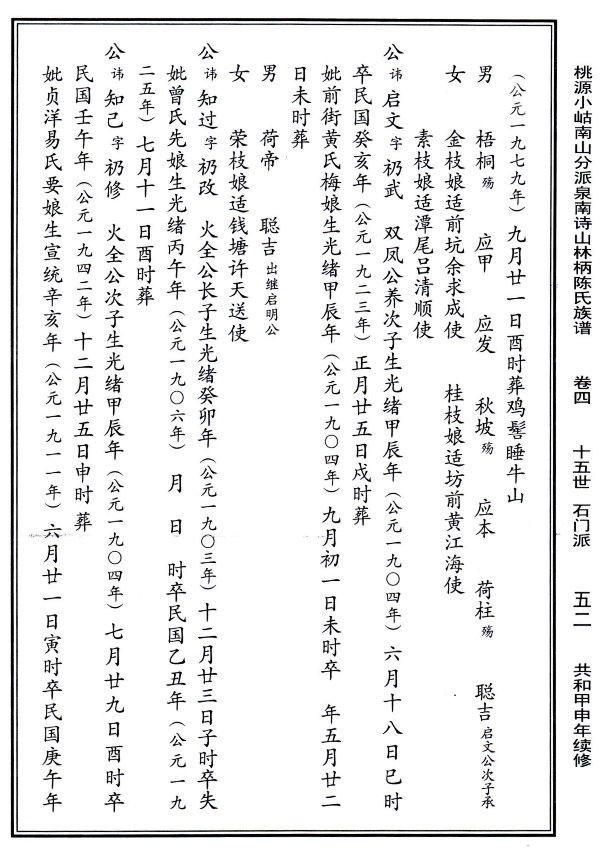 桃源小岵南山分派泉南诗山林柄陈氏族谱 卷四 十五世 石门派 五二 共和甲申年续修
（公元一九七九年）九月廿一日酉时葬鸡髻睡牛山
男 梧桐殇 应甲 应发 秋坡殇 应本 荷柱殇 聪吉启文公次子承
女 金枝娘适前坑余求成使 桂枝娘适坊前黄江海使
素枝娘适潭尾吕清顺使
公讳启文字礽武 双凤公养次子生光绪甲辰年（公元一九〇四年）六月十八日巳时
卒民国癸亥年（公元一九二三年）正月廿五日戌时葬
妣前街黄氏梅娘生光绪甲辰年（公元一九〇四年）九月初一日未时卒 年五月廿二
日未时葬
男 荷帝 聪吉出继启明公
女 荣枝娘适钱塘许天送使
公讳知过字礽改 火全公长子生光绪癸卯年（公元一九〇三年）十二月廿三日子时卒失
妣曾氏先娘生光绪丙午年（公元一九〇六年） 月 日 时卒民国乙丑年（公元一九
二五年）七月十一日酉时葬
公讳知己字礽修 火全公次子生光绪甲辰年（公元一九〇四年）七月廿九日酉时卒
民国壬午年（公元一九四二年）十二月廿五日申时葬
妣贞洋易氏要娘生宣统辛亥年（公元一九一一年）六月廿一日寅时卒民国庚午年